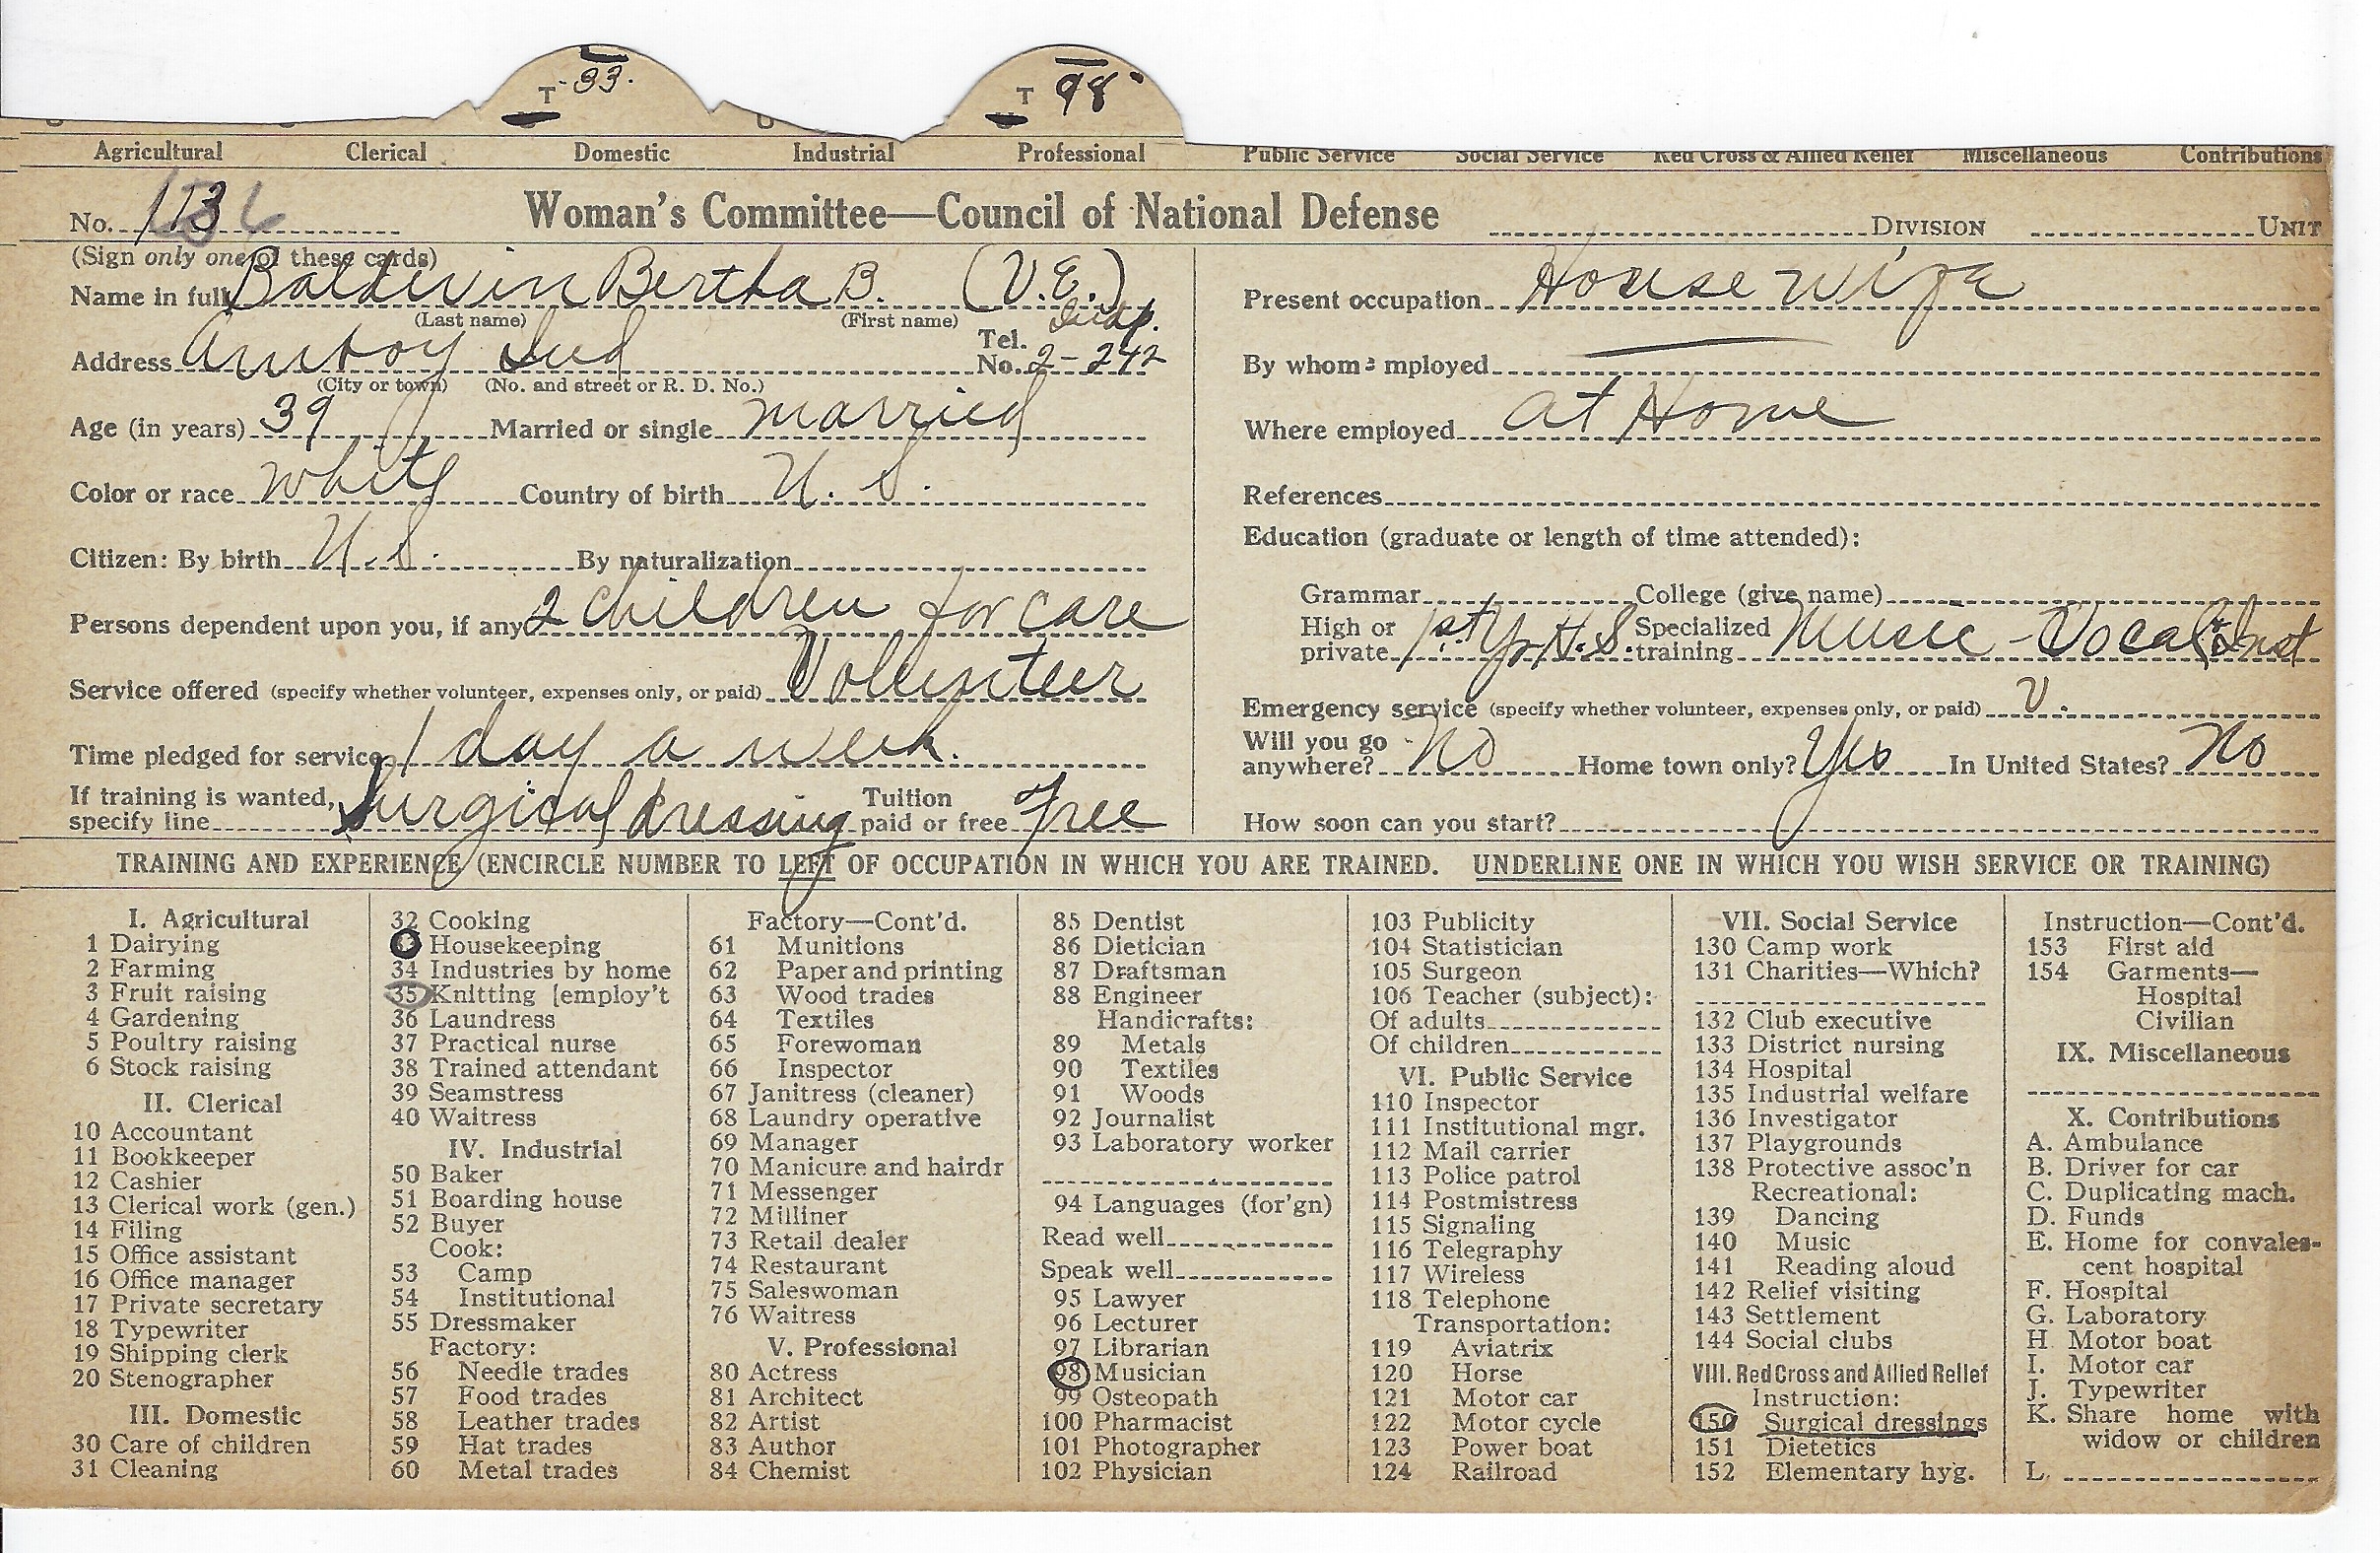 T 33. T 98
Agricultural Clerical Domestic Industrial Professional Public Service Social Service Red Cross & Allied Relief Miscellaneous Contributions
No. 113 Woman's Committee—Council of National Defense DIVISION UNIT
(Sign only one of these cards)
Name in full Baldwin Bertha B. (V.E.)
(Last name) (First name)
Address Amboy Ind Tel. No. 2-242
(City or town) (No. and street or R. D. No.)
Age (in years) 39 Married or single married
Color or race White Country of birth U. S.
Citizen: By birth U.S. By naturalization
Persons dependent upon you, if any 2 children for care
Service offered (specify whether volunteer, expenses only, or paid) Volunteer
Time pledged for service 1 day a week.
If training is wanted, specify line Surgical dressing Tuition paid or free Free
Present occupation House wife
By whom employed
Where employed at Home
References
Education (graduate or length of time attended):
Grammar College (give name)
High or private 1st Yr H.S. Specialized training Music - Vocal & Inst
Emergency service (specify whether volunteer, expenses only, or paid) V.
Will you go anywhere? No Home town only? Yes In United States? No
How soon can you start?
TRAINING AND EXPERIENCE (ENCIRCLE NUMBER TO LEFT OF OCCUPATION IN WHICH YOU ARE TRAINED. UNDERLINE ONE IN WHICH YOU WISH SERVICE OR TRAINING)
I. Agricultural
1 Dairying
2 Farming
3 Fruit raising
4 Gardening
5 Poultry raising
6 Stock raising
II. Clerical
10 Accountant
11 Bookkeeper
12 Cashier
13 Clerical work (gen.)
14 Filing
15 Office assistant
16 Office manager
17 Private secretary
18 Typewriter
19 Shipping clerk
20 Stenographer
III. Domestic
30 Care of children
31 Cleaning
32 Cooking
33 Housekeeping
34 Industries by home
35 Knitting [employ't
36 Laundress
37 Practical nurse
38 Trained attendant
39 Seamstress
40 Waitress
IV. Industrial
50 Baker
51 Boarding house
52 Buyer
Cook:
53 Camp
54 Institutional
55 Dressmaker
Factory:
56 Needle trades
57 Food trades
58 Leather trades
59 Hat trades
60 Metal trades
Factory—Cont'd.
61 Munitions
62 Paper and printing
63 Wood trades
64 Textiles
65 Forewoman
66 Inspector
67 Janitress (cleaner)
68 Laundry operative
69 Manager
70 Manicure and hairdr
71 Messenger
72 Milliner
73 Retail dealer
74 Restaurant
75 Saleswoman
76 Waitress
V. Professional
80 Actress
81 Architect
82 Artist
83 Author
84 Chemist
85 Dentist
86 Dietician
87 Draftsman
88 Engineer
Handicrafts:
89 Metals
90 Textiles
91 Woods
92 Journalist
93 Laboratory worker
94 Languages (for'gn)
Read well
Speak well
95 Lawyer
96 Lecturer
97 Librarian
98 Musician
99 Osteopath
100 Pharmacist
101 Photographer
102 Physician
103 Publicity
104 Statistician
105 Surgeon
106 Teacher (subject):
Of adults
Of children
VI. Public Service
110 Inspector
111 Institutional mgr.
112 Mail carrier
113 Police patrol
114 Postmistress
115 Signaling
116 Telegraphy
117 Wireless
118 Telephone
Transportation:
119 Aviatrix
120 Horse
121 Motor car
122 Motor cycle
123 Power boat
124 Railroad
VII. Social Service
130 Camp work
131 Charities—Which?
132 Club executive
133 District nursing
134 Hospital
135 Industrial welfare
136 Investigator
137 Playgrounds
138 Protective assoc'n
Recreational:
139 Dancing
140 Music
141 Reading aloud
142 Relief visiting
143 Settlement
144 Social clubs
VIII. Red Cross and Allied Relief
Instruction:
150 Surgical dressings
151 Dietetics
152 Elementary hyg.
Instruction—Cont'd.
153 First aid
154 Garments—
Hospital
Civilian
IX. Miscellaneous
X. Contributions
A. Ambulance
B. Driver for car
C. Duplicating mach.
D. Funds
E. Home for convales-
cent hospital
F. Hospital
G. Laboratory
H Motor boat
I. Motor car
J. Typewriter
K. Share home with
widow or children
L